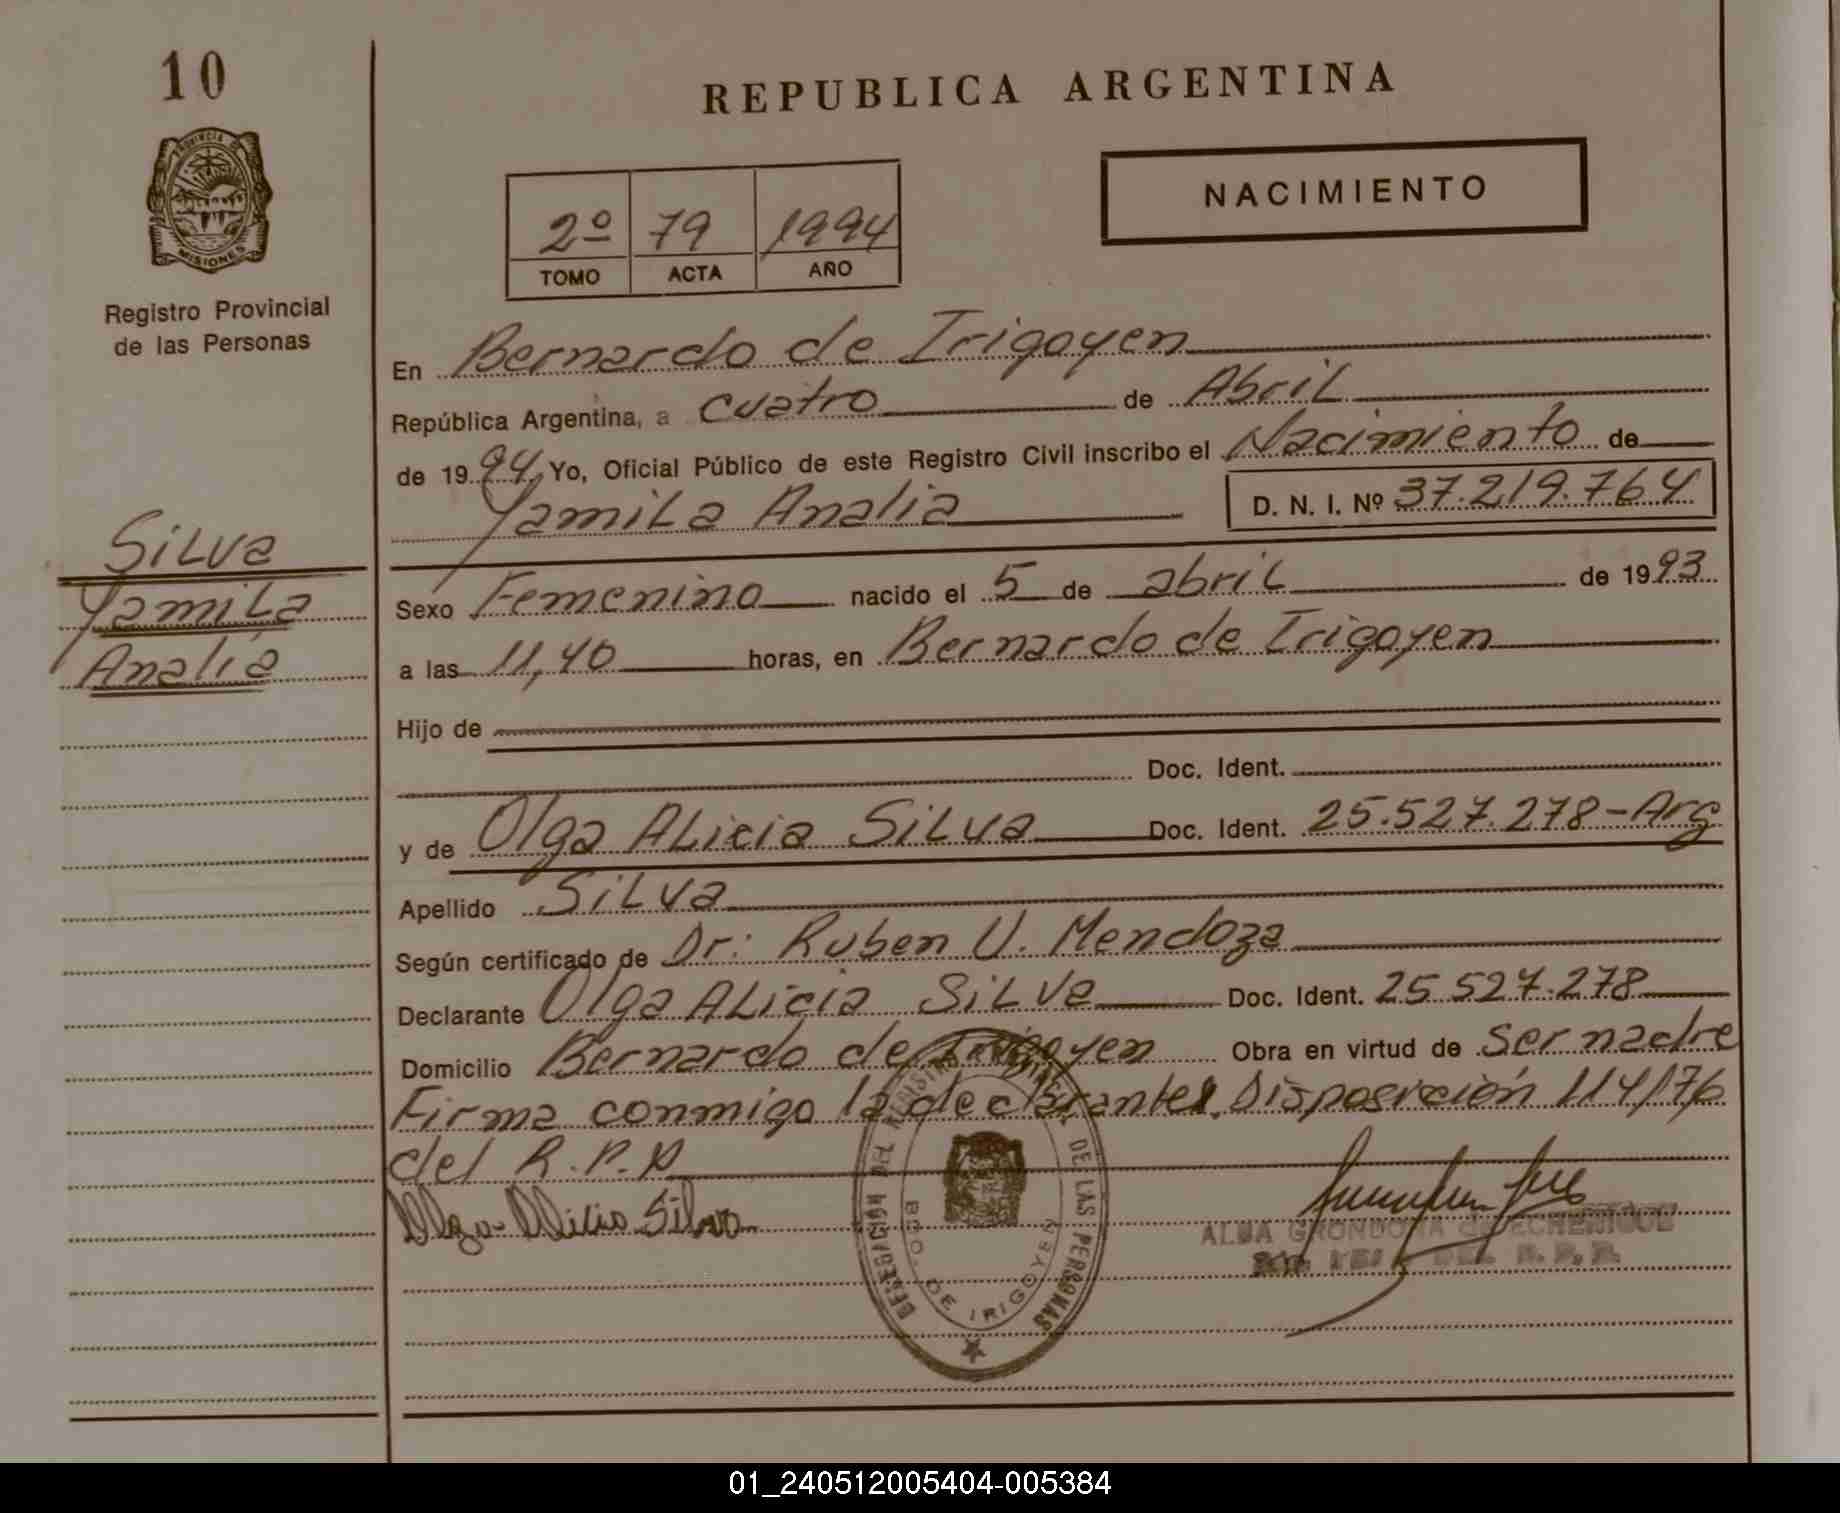 10
REPUBLICA ARGENTINA
PROVINCIA DE
MISIONES
Registro Provincial
de las Personas
NACIMIENTO
2º 79 1994
TOMO ACTA AÑO
En Bernardo de Irigoyen
República Argentina, a cuatro de Abril
de 1994 Yo, Oficial Público de este Registro Civil inscribo el Nacimiento de
Yamila Analia D. N. I. Nº 37.219.764
Silva
Yamila
Analia
Sexo Femenino nacido el 5 de abril de 1993
a las 11,40 horas, en Bernardo de Irigoyen
Hijo de
Doc. Ident.
y de Olga Alicia Silva Doc. Ident. 25.527.278-Arg
Apellido Silva
Según certificado de Dr: Ruben U. Mendoza
Declarante Olga Alicia Silva Doc. Ident. 25 527.278
Domicilio Bernardo de Irigoyen Obra en virtud de ser madre
Firma conmigo la declarante. Disposición 114/76
del R.P.P
Olga Alicia Silva
DEL REGISTRO PROVINCIAL DE LAS PERSONAS
BDO. DE IRIGOYEN
ALBA GRONDONA DE ECHENIQUE
DEL R. P. P.
01_240512005404-005384